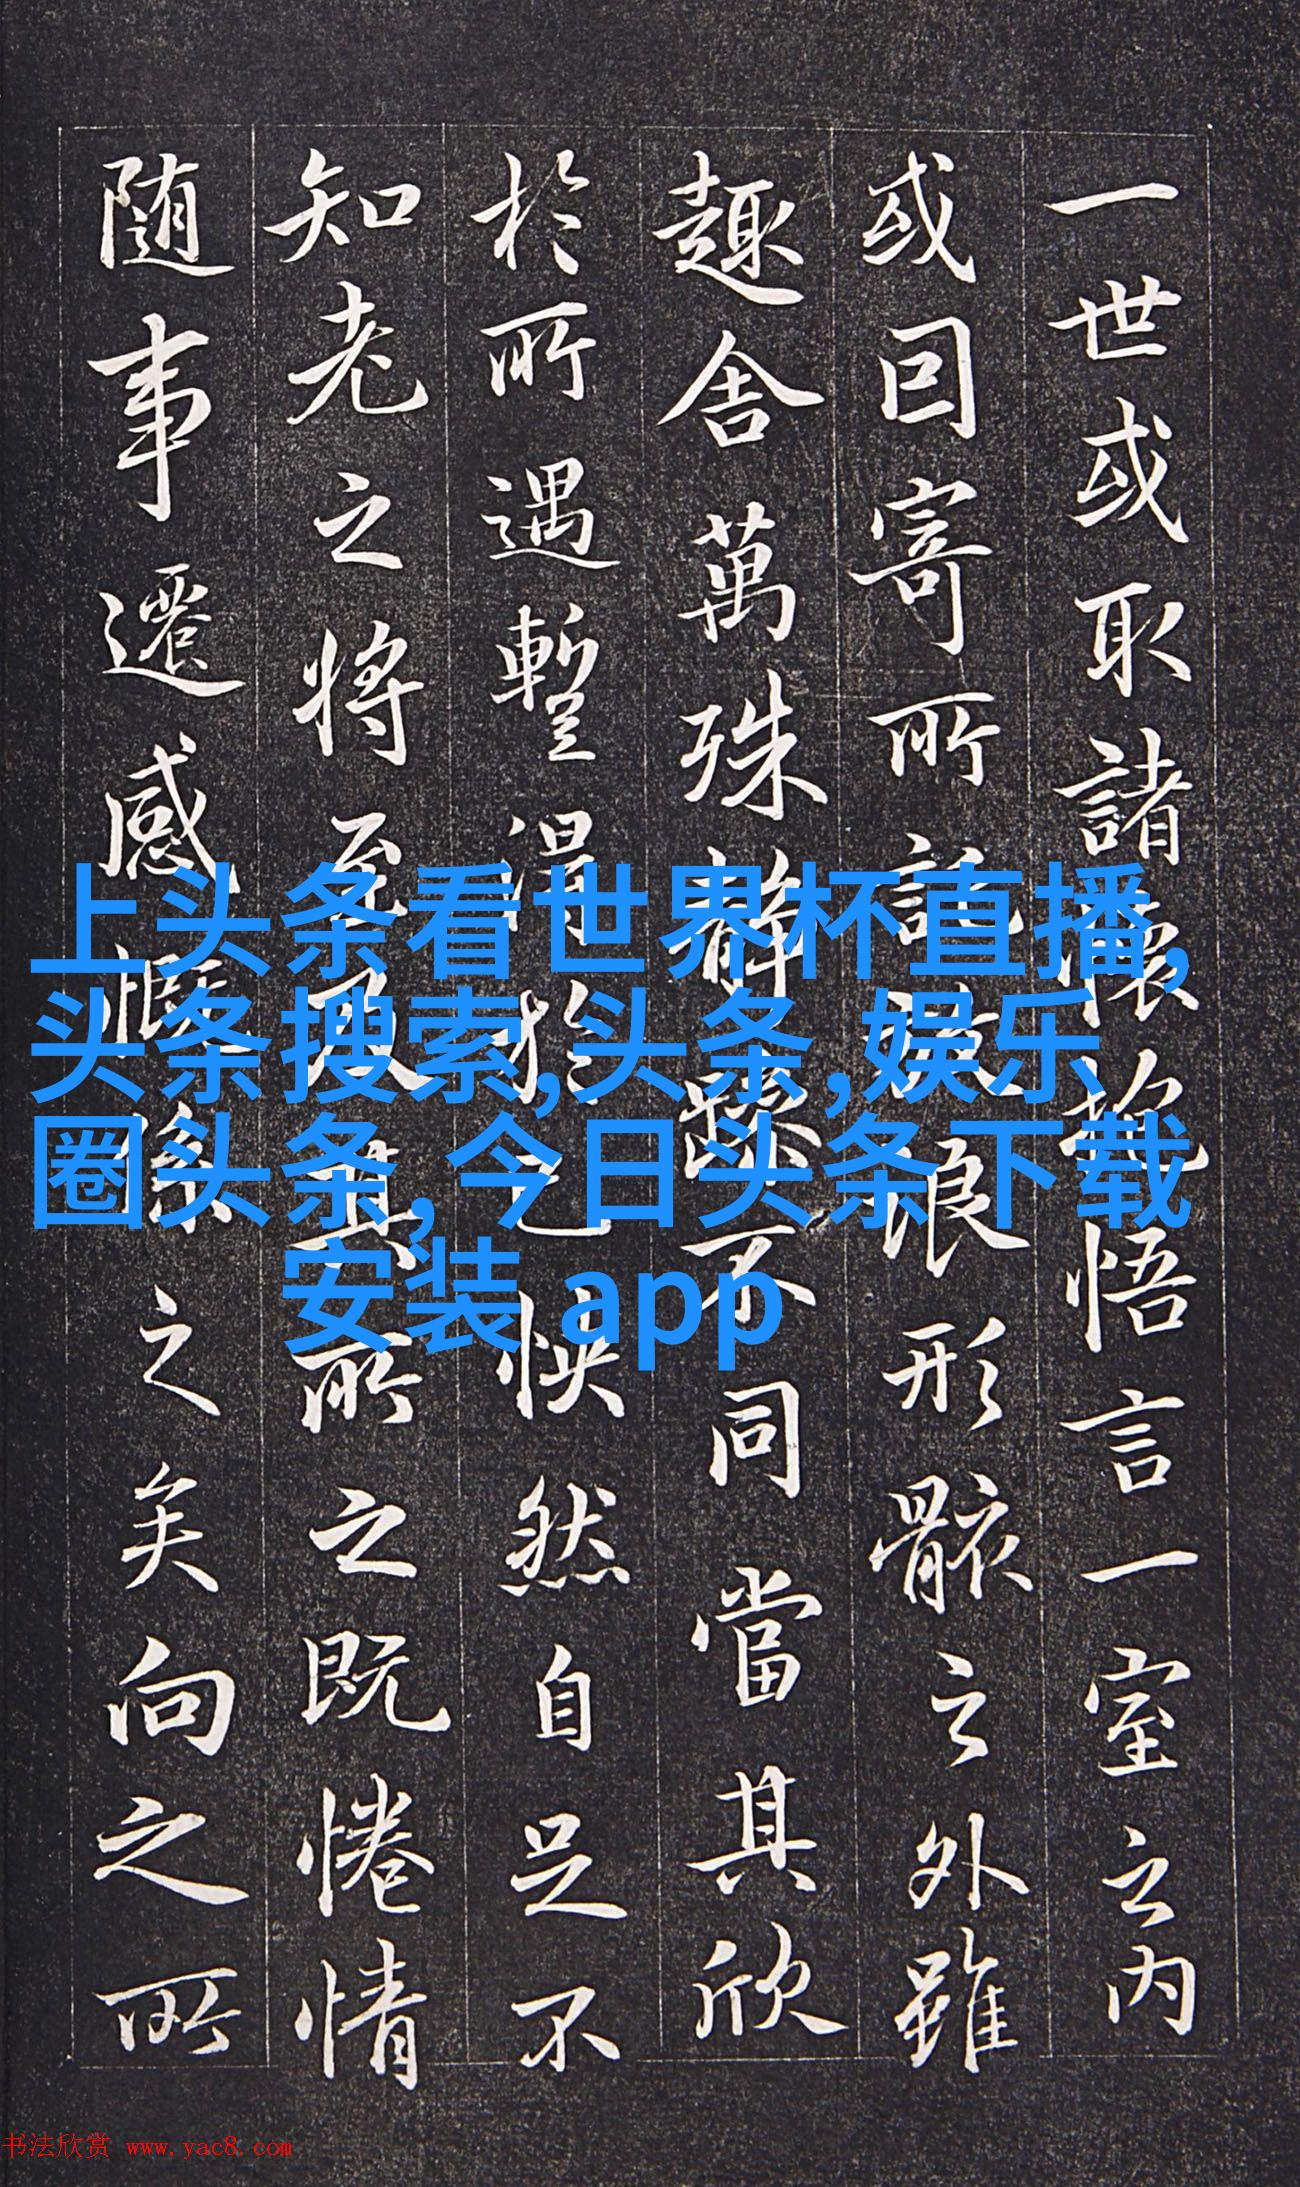 一世或取諸懷抱悟言一室之内
或因寄所託放浪形骸之外雖
趣舍萬殊静躁不同當其欣
於所遇暫得於己怏然自足不
知老之將至及其所之既惓情
随事遷感慨係之矣向之所
上头条看世界杯直播,
头条搜索,头条,娱乐
圈头条, 今日头条下载
安装 app
书法欣赏 www.yac8.com